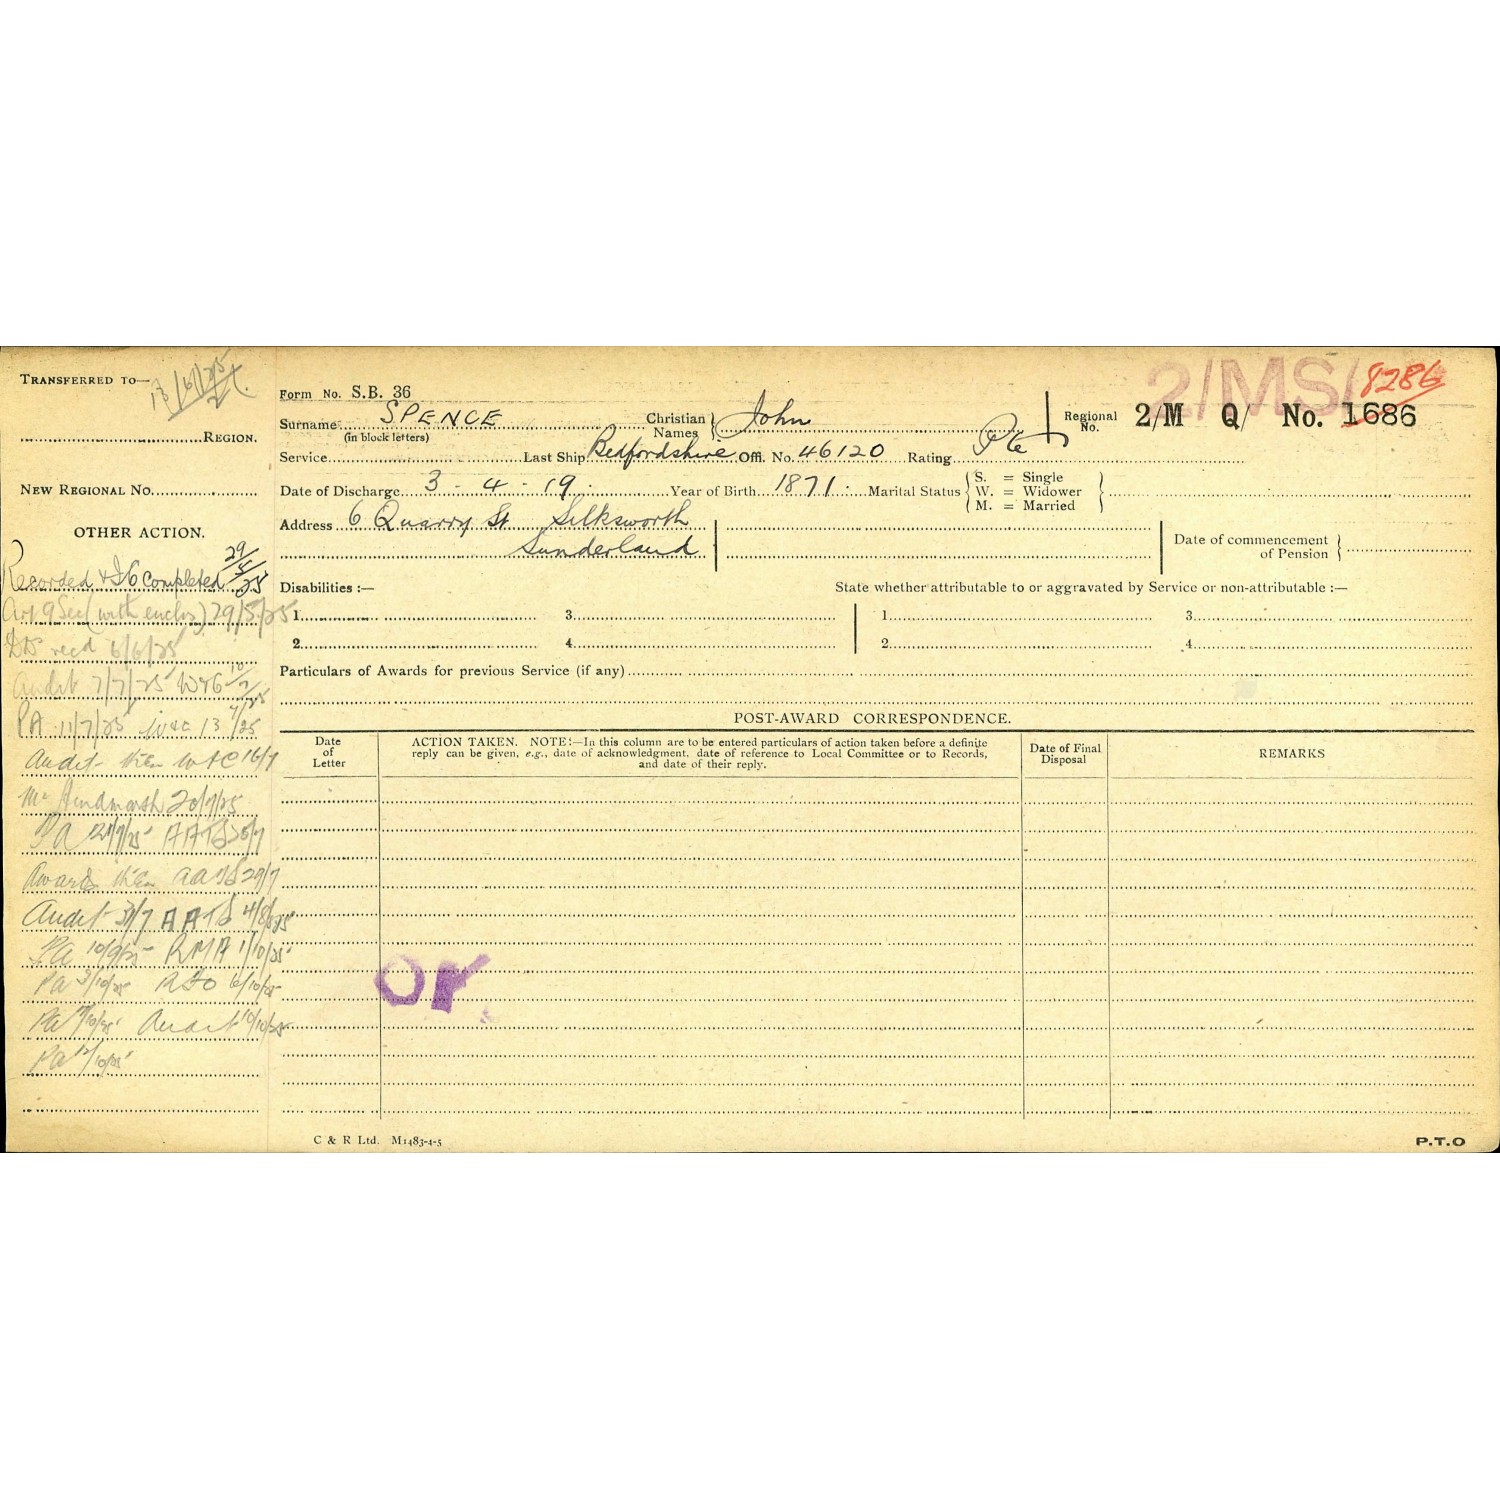 TRANSFERRED TO—
13/6/25
REGION.
NEW REGIONAL NO.
OTHER ACTION.
Recorded & I6 completed 29/5/25
Art 9 Sec (with enclos) 29/5/25
recd 6/6/25
Audit 7/7/25 W&G 10/7
PA 11/7/25 W&C 13/7/25
Audit then W&C 16/7
Mr Hindmarsh 20/7/25
PA 21/7/25 AATS 25/7
Awards then AATS 29/7
Audit 31/7 AATS 4/8/25
PA 10/9/25 RMA 1/10/25
PA 3/10/25 6/10/25
PA 9/10/25 Audit 10/10/25
PA 12/10/25
Form No. S.B. 36
2/MS/ 8286
Surname SPENCE Christian Names John
(in block letters)
Regional No. 2/M Q/ No. 1686
Service Last Ship Bedfordshire Offl. No. 46120 Rating Pte
Date of Discharge 3 - 4 - 19. Year of Birth 1871. Marital Status S. = Single
W. = Widower
M. = Married
Address 6 Quarry St Silksworth
Sunderland
Date of commencement of Pension
Disabilities :— State whether attributable to or aggravated by Service or non-attributable :—
1. 3. 1. 3.
2. 4. 2. 4.
Particulars of Awards for previous Service (if any)
POST-AWARD CORRESPONDENCE.
Date of Letter
ACTION TAKEN. NOTE:—In this column are to be entered particulars of action taken before a definite
reply can be given, e.g., date of acknowledgment, date of reference to Local Committee or to Records,
and date of their reply.
Date of Final Disposal
REMARKS
or
C & R Ltd. M1483-4-5
P.T.O